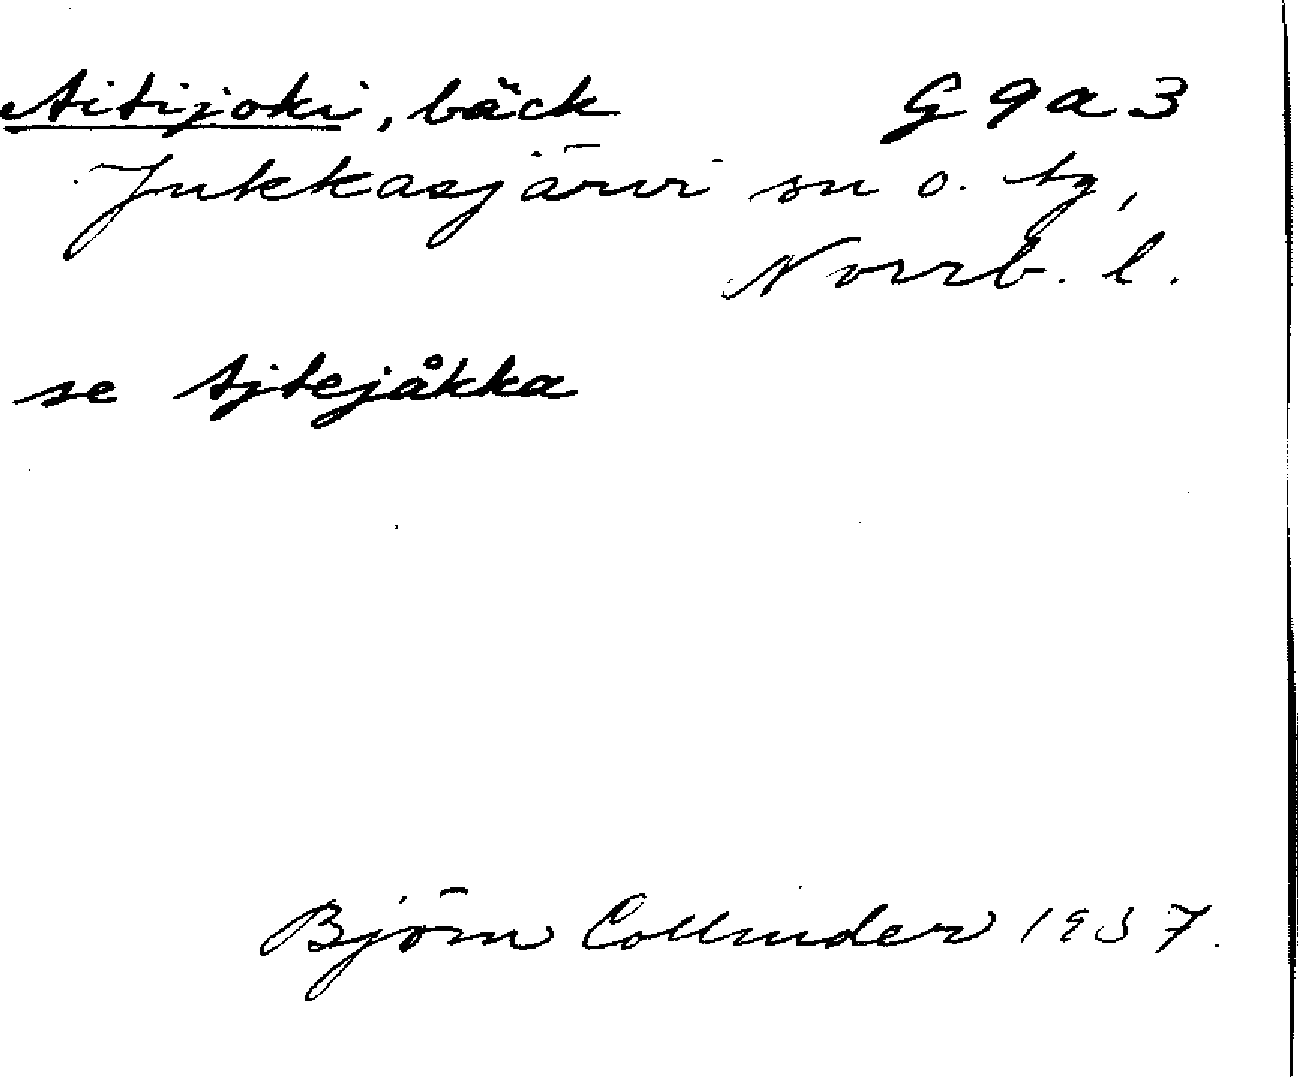 Aitijoki, bäck G 9 a 3
Jukkasjärvi sn o. tg,
Norrb. l.
se Ajtejåkka
Björn Collinder 1937.